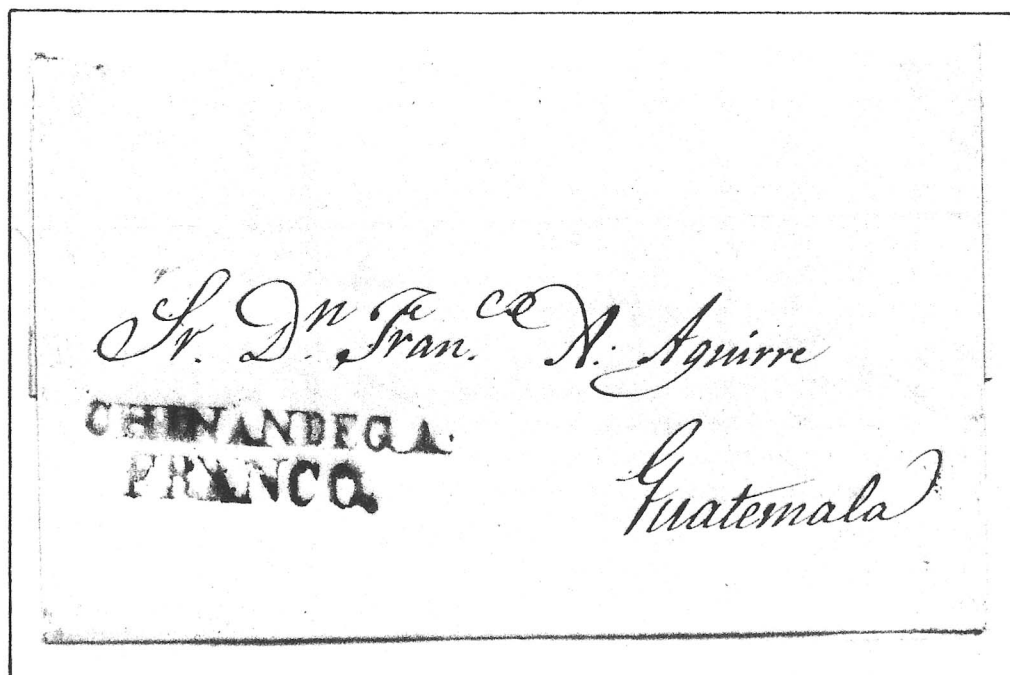 Sr. Dn. Fran.co A. Aguirre
CHINANDEGA.
FRANCO.
Guatemala